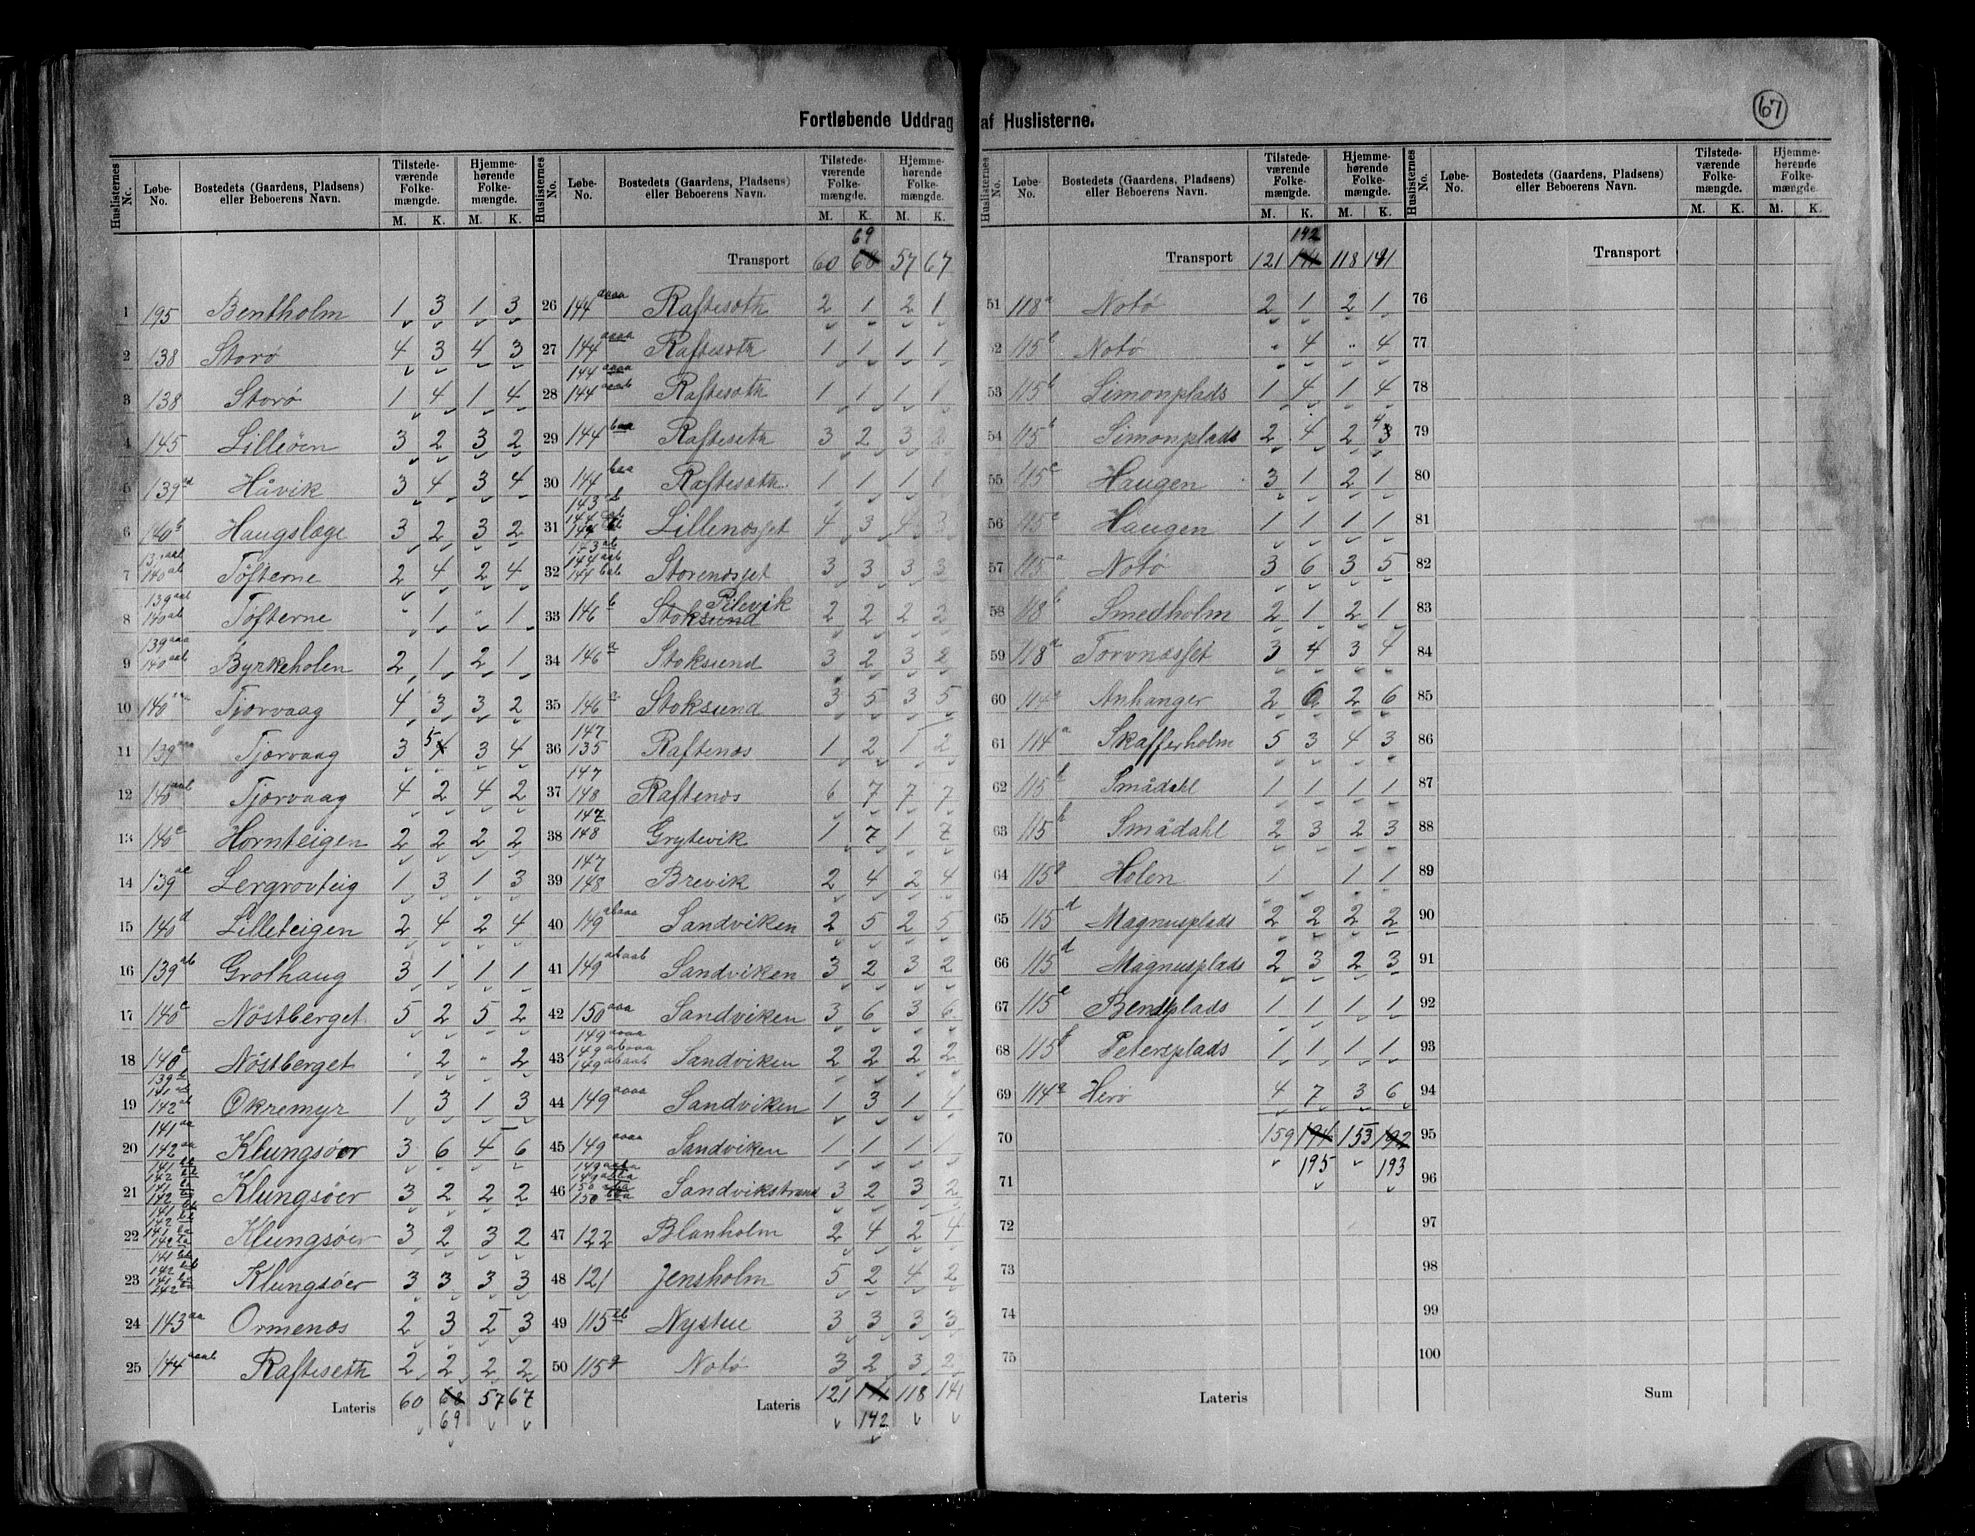 67
Fortløbende Uddrag af Huslisterne.
Huslisternes No. Løbe-No. Bostedets (Gaardens, Pladsens) eller Beboerens Navn. Tilstedeværende Folkemængde. M. K. Hjemmehørende Folkemængde. M. K.
1 195 Bentholm 1 3 1 3
2 138 Storø 4 3 4 3
3 138 Storø 1 4 1 4
4 145 Lilleöen 3 2 3 2
5 139 ad Håvik 3 4 3 4
6 140 b Haugslæge 3 2 3 2
7 140 ab Töfterne 2 4 2 4
8 139 aab 140 ab Töfterne " 1 " 1
9 139 aaa 140 aab Byrkeholen 2 1 2 1
10 140 Tjørvaag 4 3 3 2
11 139 aaa Tjørvaag 3 5 3 4
12 140 aab Tjørvaag 4 2 4 2
13 140 c Hornteigen 2 2 2 2
14 139 ac Lergrovteig 1 3 1 3
15 140 d Lilleteigen 2 4 2 4
16 139 ab Grothaug 3 1 1 1
17 140 c Nöstberget 5 2 5 2
18 140 c Nöstberget " 2 " 2
19 142 ab Økremyr 1 3 1 3
20 141 aa 142 aa Klungsöer 3 6 4 6
21 Klungsöer 3 2 2 2
22 Klungsöer 3 2 3 2
23 Klungsöer 3 3 3 3
24 143 aa Ormenæs 2 3 2 3
25 144 aaab Rafteseth 2 2 2 2
Lateris 60 68 57 67
69
Huslisternes No. Løbe-No. Bostedets (Gaardens, Pladsens) eller Beboerens Navn. Tilstedeværende Folkemængde. M. K. Hjemmehørende Folkemængde. M. K.
69
Transport 60 68 57 67
26 144 aaaa Raftesæth 2 1 2 1
27 144 aaaa Raftesæth 1 1 1 1
28 144 aaaa 144 aaab Raftesæth 1 1 1 1
29 144 baa Rafteseth 3 2 3 2
30 144 baa Raftesæth 1 1 1 1
31 Lillenæsset 4 3 4 3
32 143 ab 144 aab 144 bab Storenæsset 3 3 3 3
33 146 b Stoksund Pilevik 2 2 2 2
34 146 a Stoksund 3 2 3 2
35 146 a Stoksund 3 5 3 5
36 147 135 Raftenæs 1 2 1 2
37 147 148 Raftenæs 6 7 7 7
38 147 148 Grytevik 1 7 1 7
39 147 148 Brevik 2 4 2 4
40 149 abaaa Sandviken 2 5 2 5
41 149 abaab Sandviken 3 2 3 2
42 150 aaa Sandviken 3 6 3 6
43 149 aaaa 149 abaaa 149 abaab Sandviken 2 2 2 2
44 149 aaaa Sandviken 1 3 1 4
45 149 aaaa Sandviken 1 1 1 1
46 Sandvikstrand 3 2 3 2
47 122 Blanholm 2 4 2 4
48 121 Jensholm 5 2 4 2
49 115 ab Nystue 3 3 3 3
50 115 g Notø 3 2 3 2
Lateris 121 141 118 141
142
Huslisternes No. Løbe-No. Bostedets (Gaardens, Pladsens) eller Beboerens Navn. Tilstedeværende Folkemængde. M. K. Hjemmehørende Folkemængde. M. K.
142
Transport 121 141 118 141
51 118 a Notø 2 1 2 1
52 115 b Notø " 4 " 4
53 115 b Simonplads 1 4 1 4
54 115 b Simonplads 2 4 2 4
55 115 c Haugen 3 1 2 1
56 115 c Haugen 1 1 1 1
57 115 a Notø 3 6 3 5
58 118 b Smedholm 2 1 2 1
59 118 a Torvnæsset 3 4 3 4
60 114 a Anhanger 2 6 2 6
61 114 a Skafferholm 5 3 4 3
62 115 h Smådahl 1 1 1 1
63 115 h Smådahl 2 3 2 3
64 115 g Holen 1 1 1
65 115 d Magnusplads 2 2 2 2
66 115 d Magnusplads 2 3 2 3
67 115 e Bendtplads 1 1 1 1
68 115 f Petersplads 1 1 1 1
69 114 a Herø 4 7 3 6
70 159 194 153 192
71 195 193
72
73
74
75
Lateris
Huslisternes No. Løbe-No. Bostedets (Gaardens, Pladsens) eller Beboerens Navn. Tilstedeværende Folkemængde. M. K. Hjemmehørende Folkemængde. M. K.
Transport
76
77
78
79
80
81
82
83
84
85
86
87
88
89
90
91
92
93
94
95
96
97
98
99
100
Sum